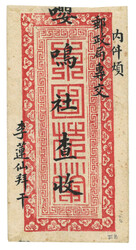 內件煩
郵政局專交
嚶鳴社查收
李蓮仙拜干